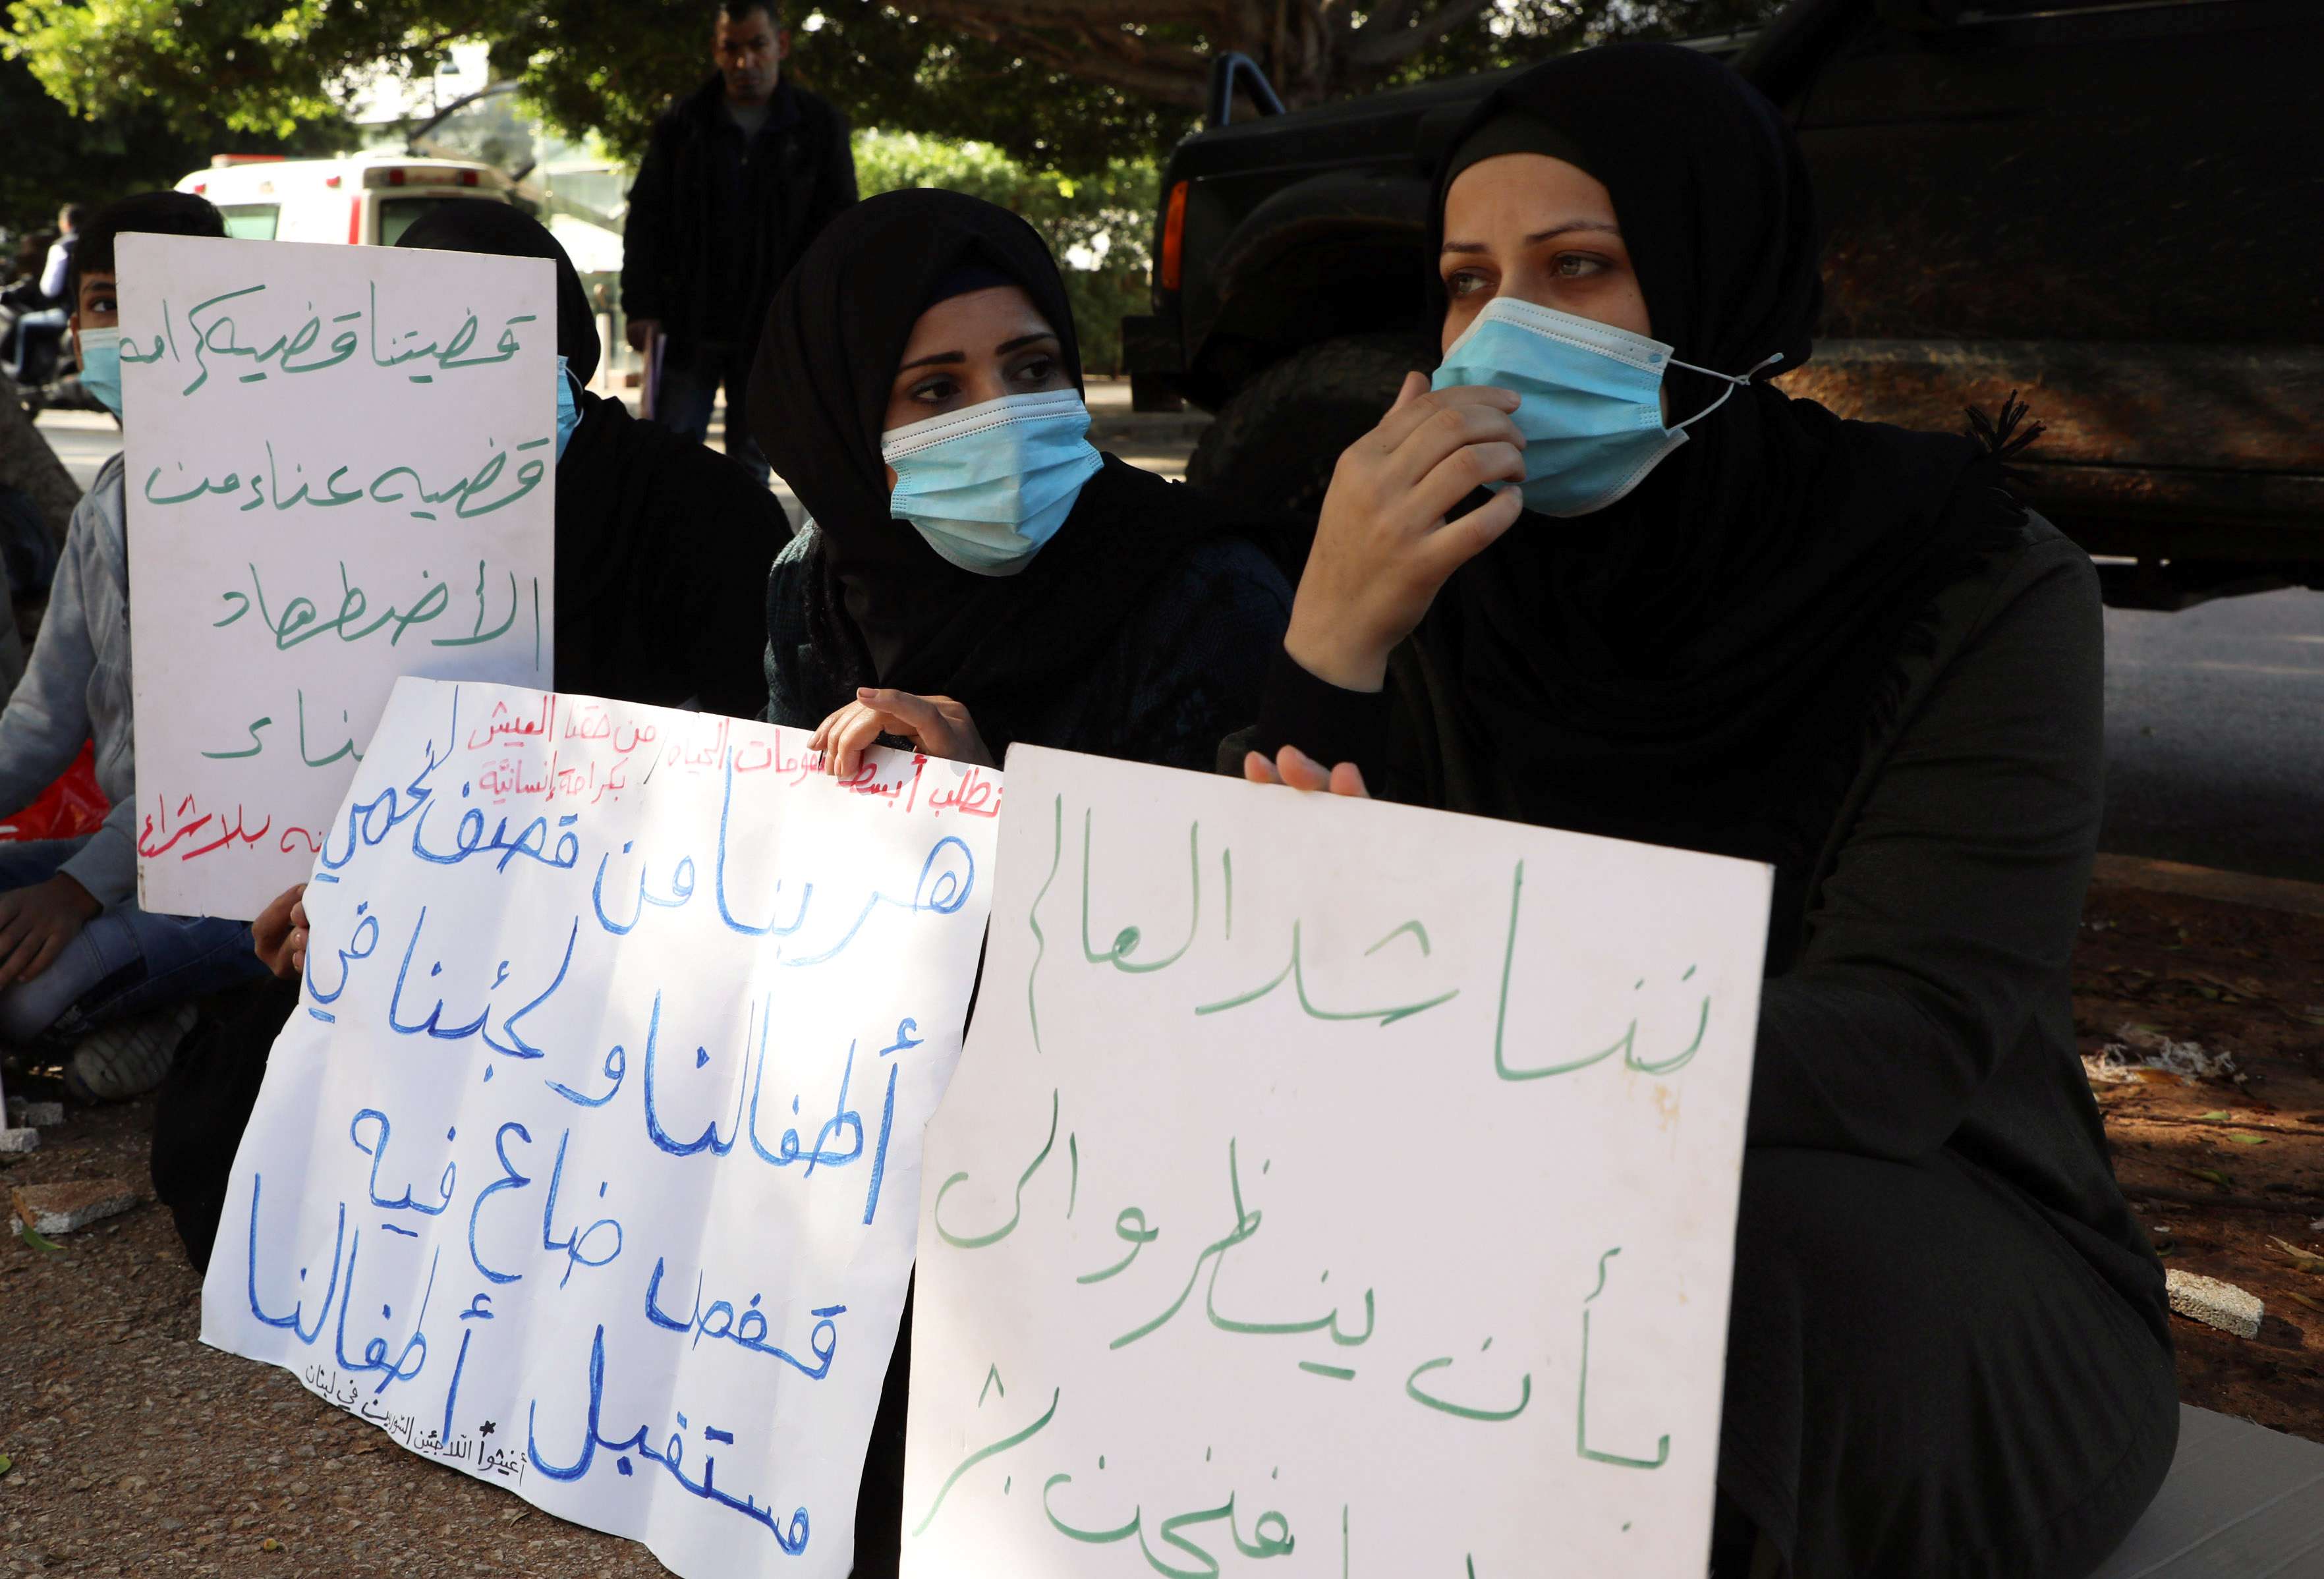 قضيتنا قضيه كرامه
قضيه عناء من
الأضطهاد
بلا شراع
نطلب أبسط مقومات الحياه / من حقنا العيش
بكرامة إنسانيّة
هربنا من قصف لنحمي
أطفالنا ولجئنا في
قفص ضاع فيه
مستقبل أطفالنا
*أغيثوا اللاجئين السّوريين في لبنان
نناشد العالم
بأن ينظروا الى
فنحن بشر